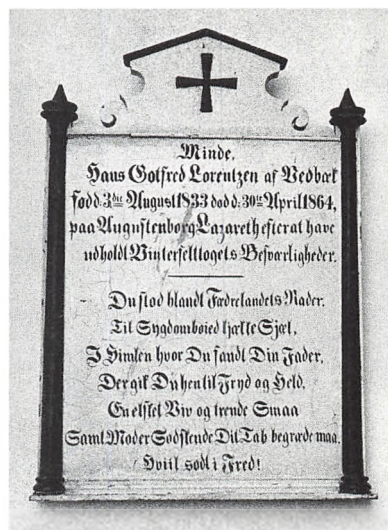 Minde,
Hans Gotfred Lorentzen af Vedbæk
født d: 3die August 1833 død d: 30te April 1864,
paa Augustenborg Lazareth efter at have
udholdt Vinterfelttogets Besværligheder.
Du stod blandt Fædrelandets Rader.
Til Sygdom bøied kjække Sjæl,
I Himlen hvor Du fandt Din Fader,
Der gik Du hen til Fryd og Held.
En elsket Viv og trende Smaa
Samt Moder Sødskende Dit Tab begræde maa.
Hviil sødt i Fred!